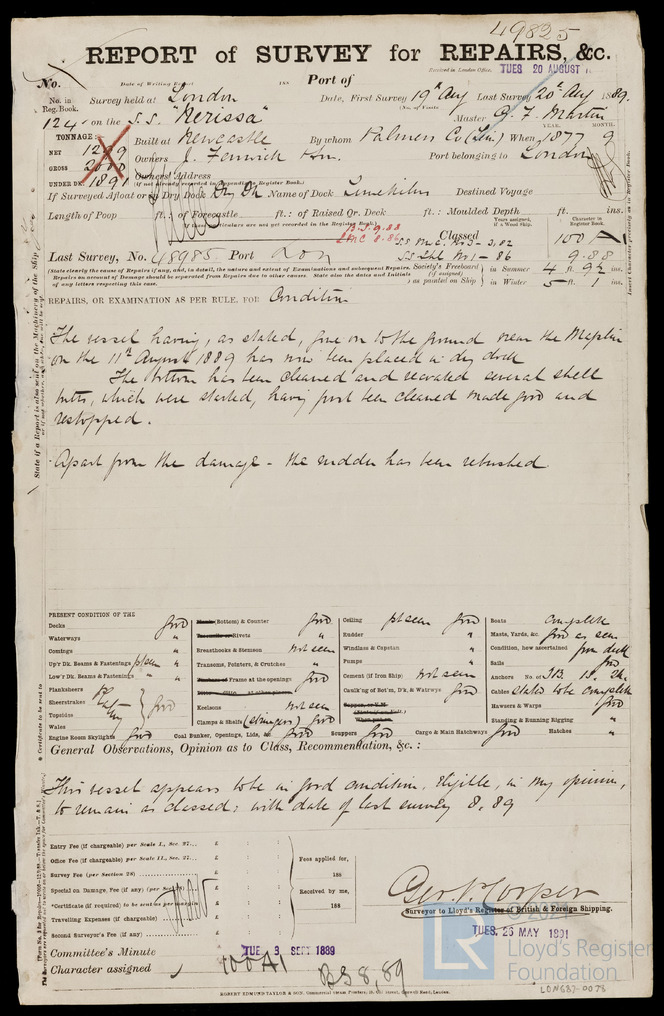 49825
REPORT of SURVEY for REPAIRS, &c.
Received in London Office, TUES 20 AUGUST
No. Date of Writing Report 188 Port of
No. in Reg. Book. Survey held at London Date, First Survey 19th Aug Last Survey 20th Aug 1889.
(No. of Visits
124 on the S.S. "Nerissa" Master G. F. Martin
TONNAGE: YEAR. MONTH.
NET 1299 Built at Newcastle By whom Palmers Co (Lim) When 1877 9
GROSS 2000 Owners J. Fenwick & Son. Port belonging to London
UNDER DK. 1891 Owners' Address
(if not already recorded in Appendix to Register Book.)
If Surveyed Afloat or in Dry Dock Dry Dk Name of Dock Limekiln Destined Voyage
Length of Poop ft.: of Forecastle ft.: of Raised Qr. Deck ft.: Moulded Depth ft. ins.
B.S. 9.88
LMC 8.86
Classed 100 A 1
SS M.C. No 3 - 3.82
SS Lhl No 1 - 86 9.88
Last Survey, No. 48985 Port Lon
(State clearly the cause of Repairs if any, and, in detail, the nature and extent of Examinations and subsequent Repairs.
Repairs on account of Damage should be separated from Repairs due to other causes. State also the dates and Initials
of any letters respecting this case.
Society's Freeboard (if assigned) as painted on Ship in Summer 4 ft. 9½ ins.
in Winter 5 ft. 1 ins.
REPAIRS, OR EXAMINATION AS PER RULE, FOR Condition
The vessel having, as stated, gone on to the ground near the Maplin
on the 11th August 1889 has now been placed in dry dock
The bottom has been cleaned and recoated several shell
butts, which were started, having first been cleaned made good and
restopped.
Apart from the damage - the rudder has been rebushed
PRESENT CONDITION OF THE
Decks good
Waterways "
Comings "
Up'r Dk. Beams & Fastenings pt seen "
Low'r Dk. Beams & Fastenings "
Planksheers
Sheerstrakes
Topsides good
Wales
Engine Room Skylights good
(Bottom) & Counter good
Rivets "
Breasthooks & Stemson not seen
Transoms, Pointers, & Crutches "
Frame at the openings good
Keelsons not seen
Clamps & Shelfs (stringers) good
Coal Bunker, Openings, Lids, &c. good
Ceiling pt seen good
Rudder "
Windlass & Capstan "
Pumps "
Cement (if Iron Ship) not seen
Caulk'ng of Bot'm, D'k, & Watrwys good
Scuppers good Cargo & Main Hatchways good Hatches "
Boats complete
Masts, Yards, &c. good as seen
Condition, how ascertained from deck
Sails good
Anchors No. of 3B. 1S. 2k.
Cables stated to be complete
Hawsers & Warps good
Standing & Running Rigging "
General Observations, Opinion as to Class, Recommendation, &c.:
This vessel appears to be in good condition, eligible, in my opinion,
to remain as classed: with date of last survey 8.89
Entry Fee (if chargeable) per Scale I., Sec. 27... £ : :
Office Fee (if chargeable) per Scale II., Sec. 27... £ : :
Survey Fee (per Section 28) £ : :
Special on Damage Fee (if any) (per £ : :
*Certificate (if required) to be sent as per margin £ : :
Travelling Expenses (if chargeable) £ : :
Second Surveyor's Fee (if any) £ : :
Fees applied for,
188
Received by me,
188
Surveyor to Lloyd's Register of British & Foreign Shipping.
TUES. 26 MAY 1891
Committee's Minute TUE 3 SEPT 1889
Character assigned 100A1
BS 8,89
LR
© 2021
Lloyd's Register
Foundation
LON887-0073